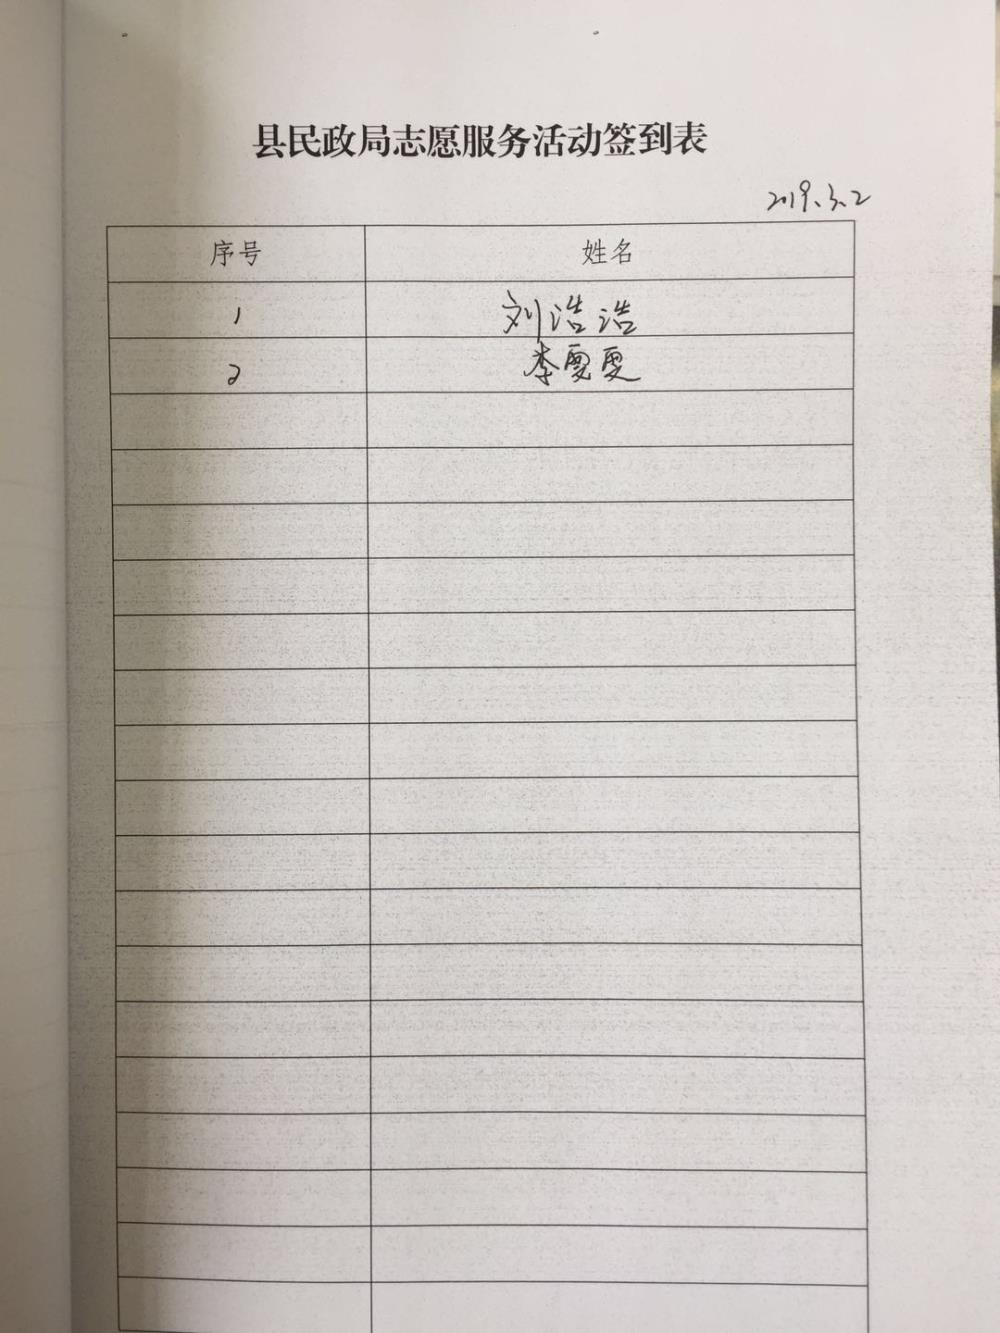 县民政局志愿服务活动签到表
2019.3.2
序号 姓名
1 刘浩浩
2 李雯雯